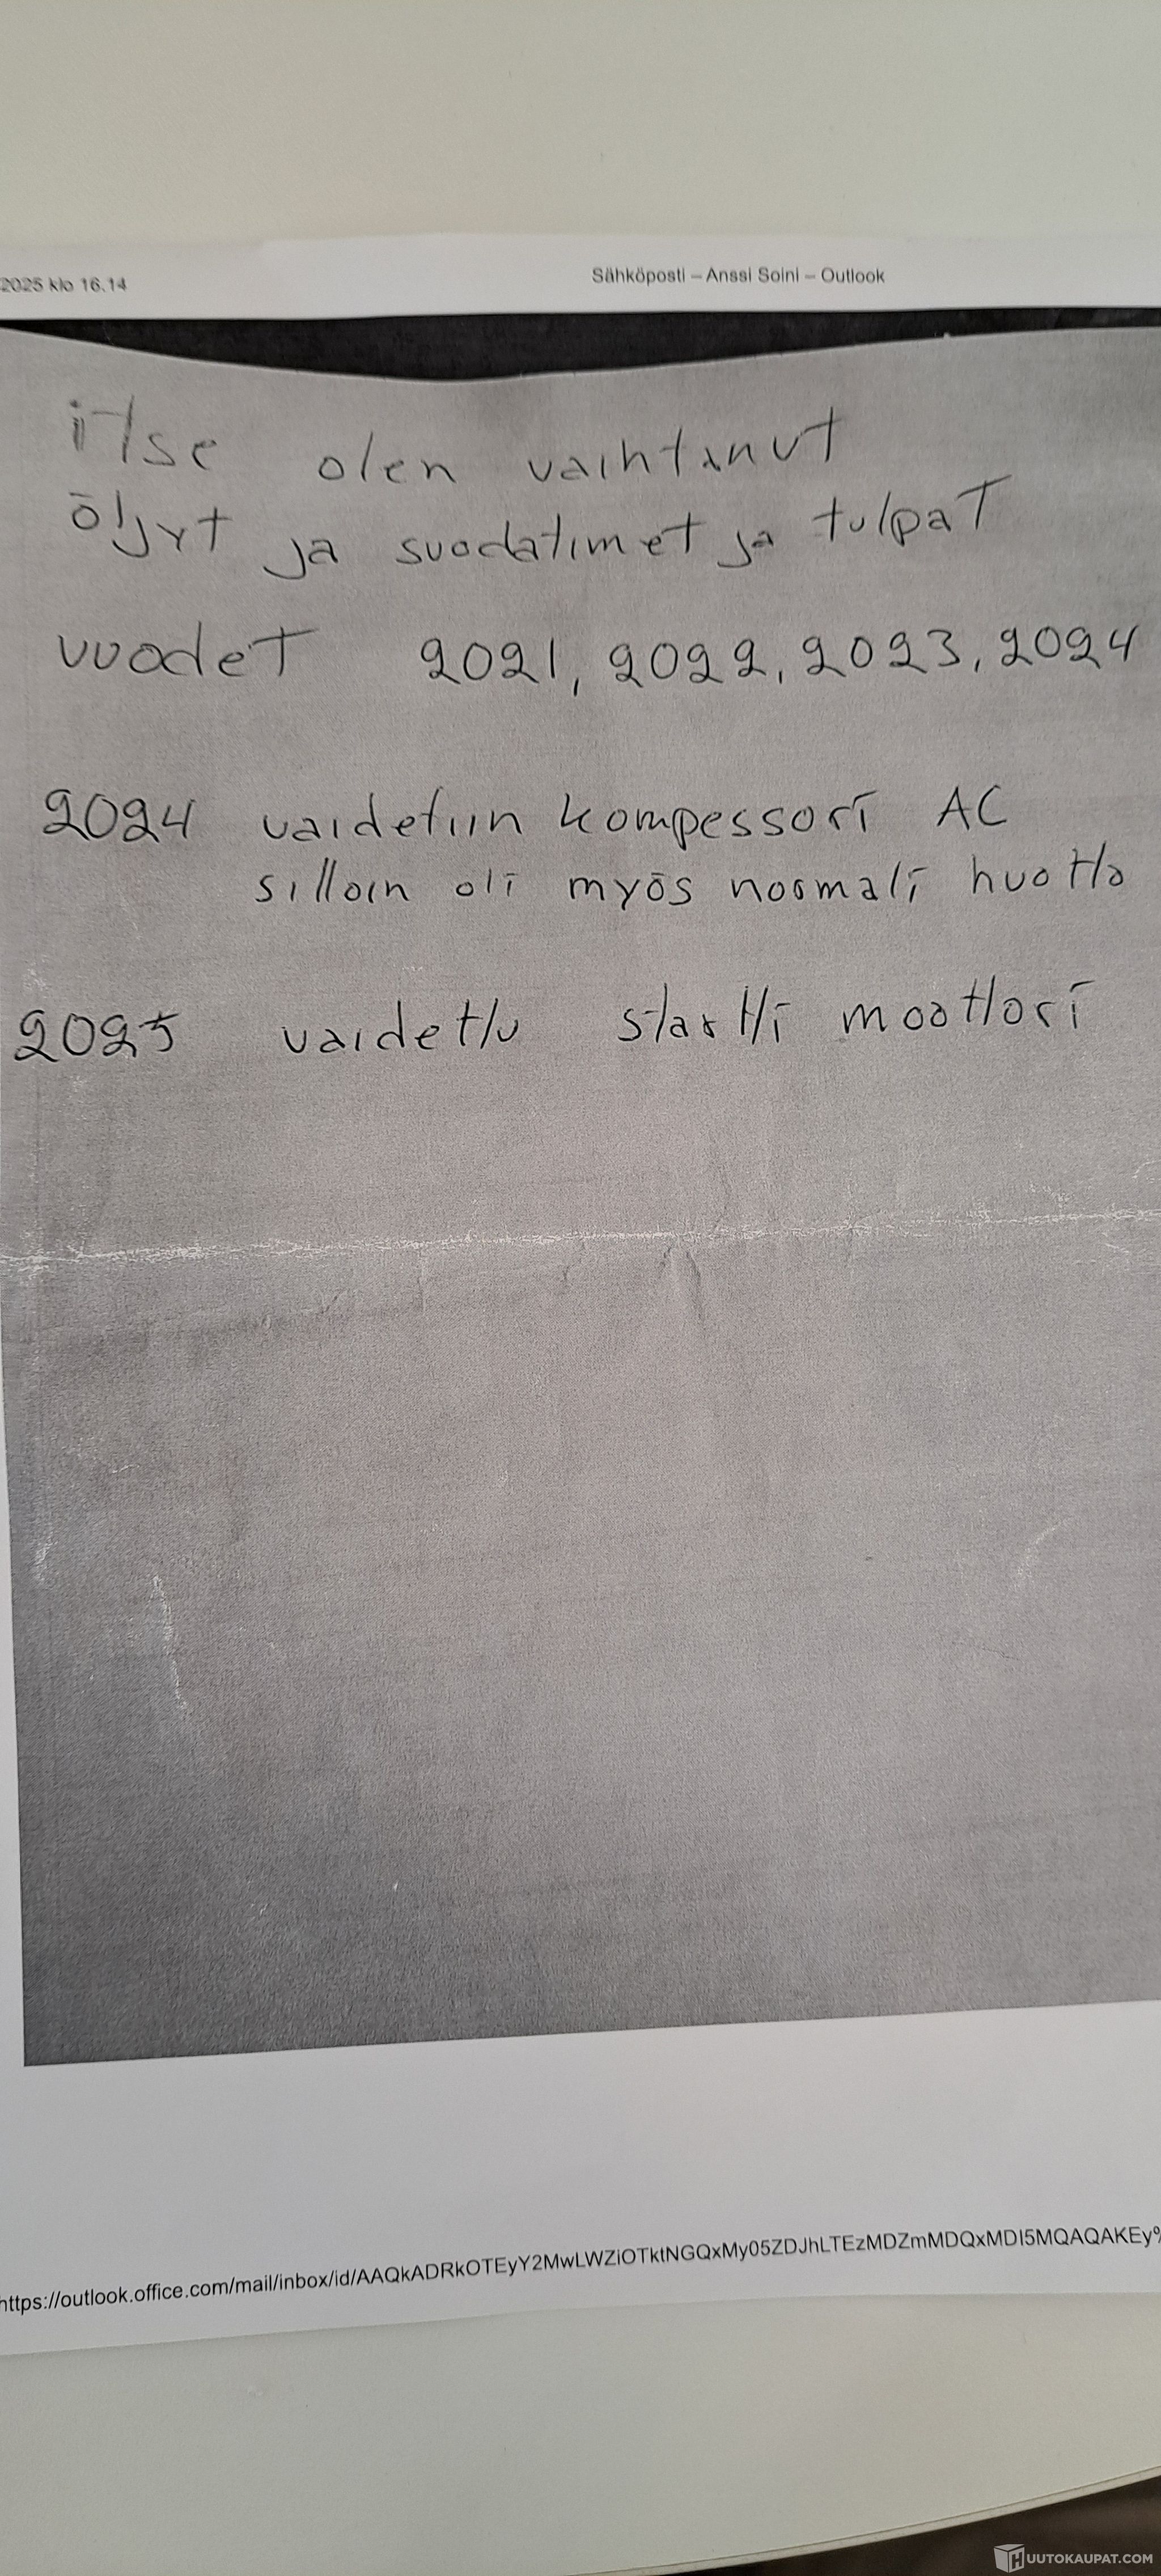 2025 klo 16.14 Sähköposti – Anssi Soini – Outlook
itse olen vaihtanut
öljyt ja suodatimet ja tulpat
vuodet 2021, 2022, 2023, 2024
2024 vaidetiin kompessori AC
silloin oli myös noomali huotto
2025 vaidettu startti moottori
https://outlook.office.com/mail/inbox/id/AAQkADRkOTEyY2MwLWZiOTktNGQxMy05ZDJhLTEzMDZmMDQxMDI5MQAQAKEy%
HUUTOKAUPAT.COM